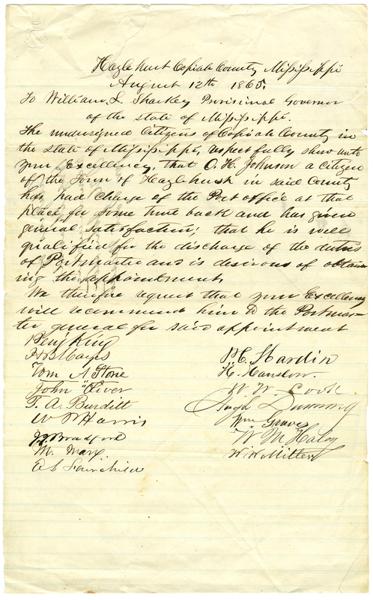 Hazlehurst Copiah County Mississippi
August 12th 1865.
To William L. Sharkey Provisional Governor
of the state of Mississippi.
The undersigned Citizens of Copiah County in
the state of Mississippi, respectfully show unto
your Excellency, that C. H. Johnson a citizen
of the Town of Hazlehurst in said County
has had charge of the Post office at that
place for some time back and has given
general satisfaction; that he is well
qualified for the discharge of the duties
of Postmaster and is desirous of obtain-
ing the appointment.
We therefore request that your Excellency
will recommend him to the Postmas-
ter general for said appointment
Benj King
H B Mayes
Tom A Stone
John River
T. A. Burditt
W P Harris
Bradford
M. Marx
E S Fairchild
P C Hardin
H. Canslow.
W. W. Cook
Hugh
Wm Graves
W M Haley
W. W. Mitten